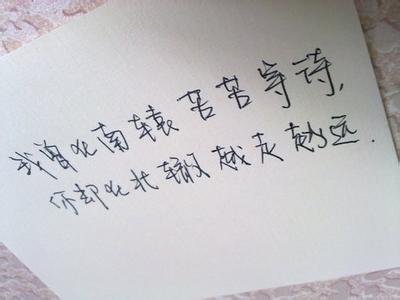 我曾以南辕苦苦等待,
你却以北辙越走越远.